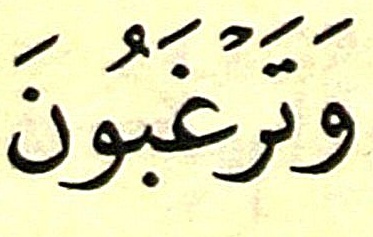 وَتَرْغَبُونَ